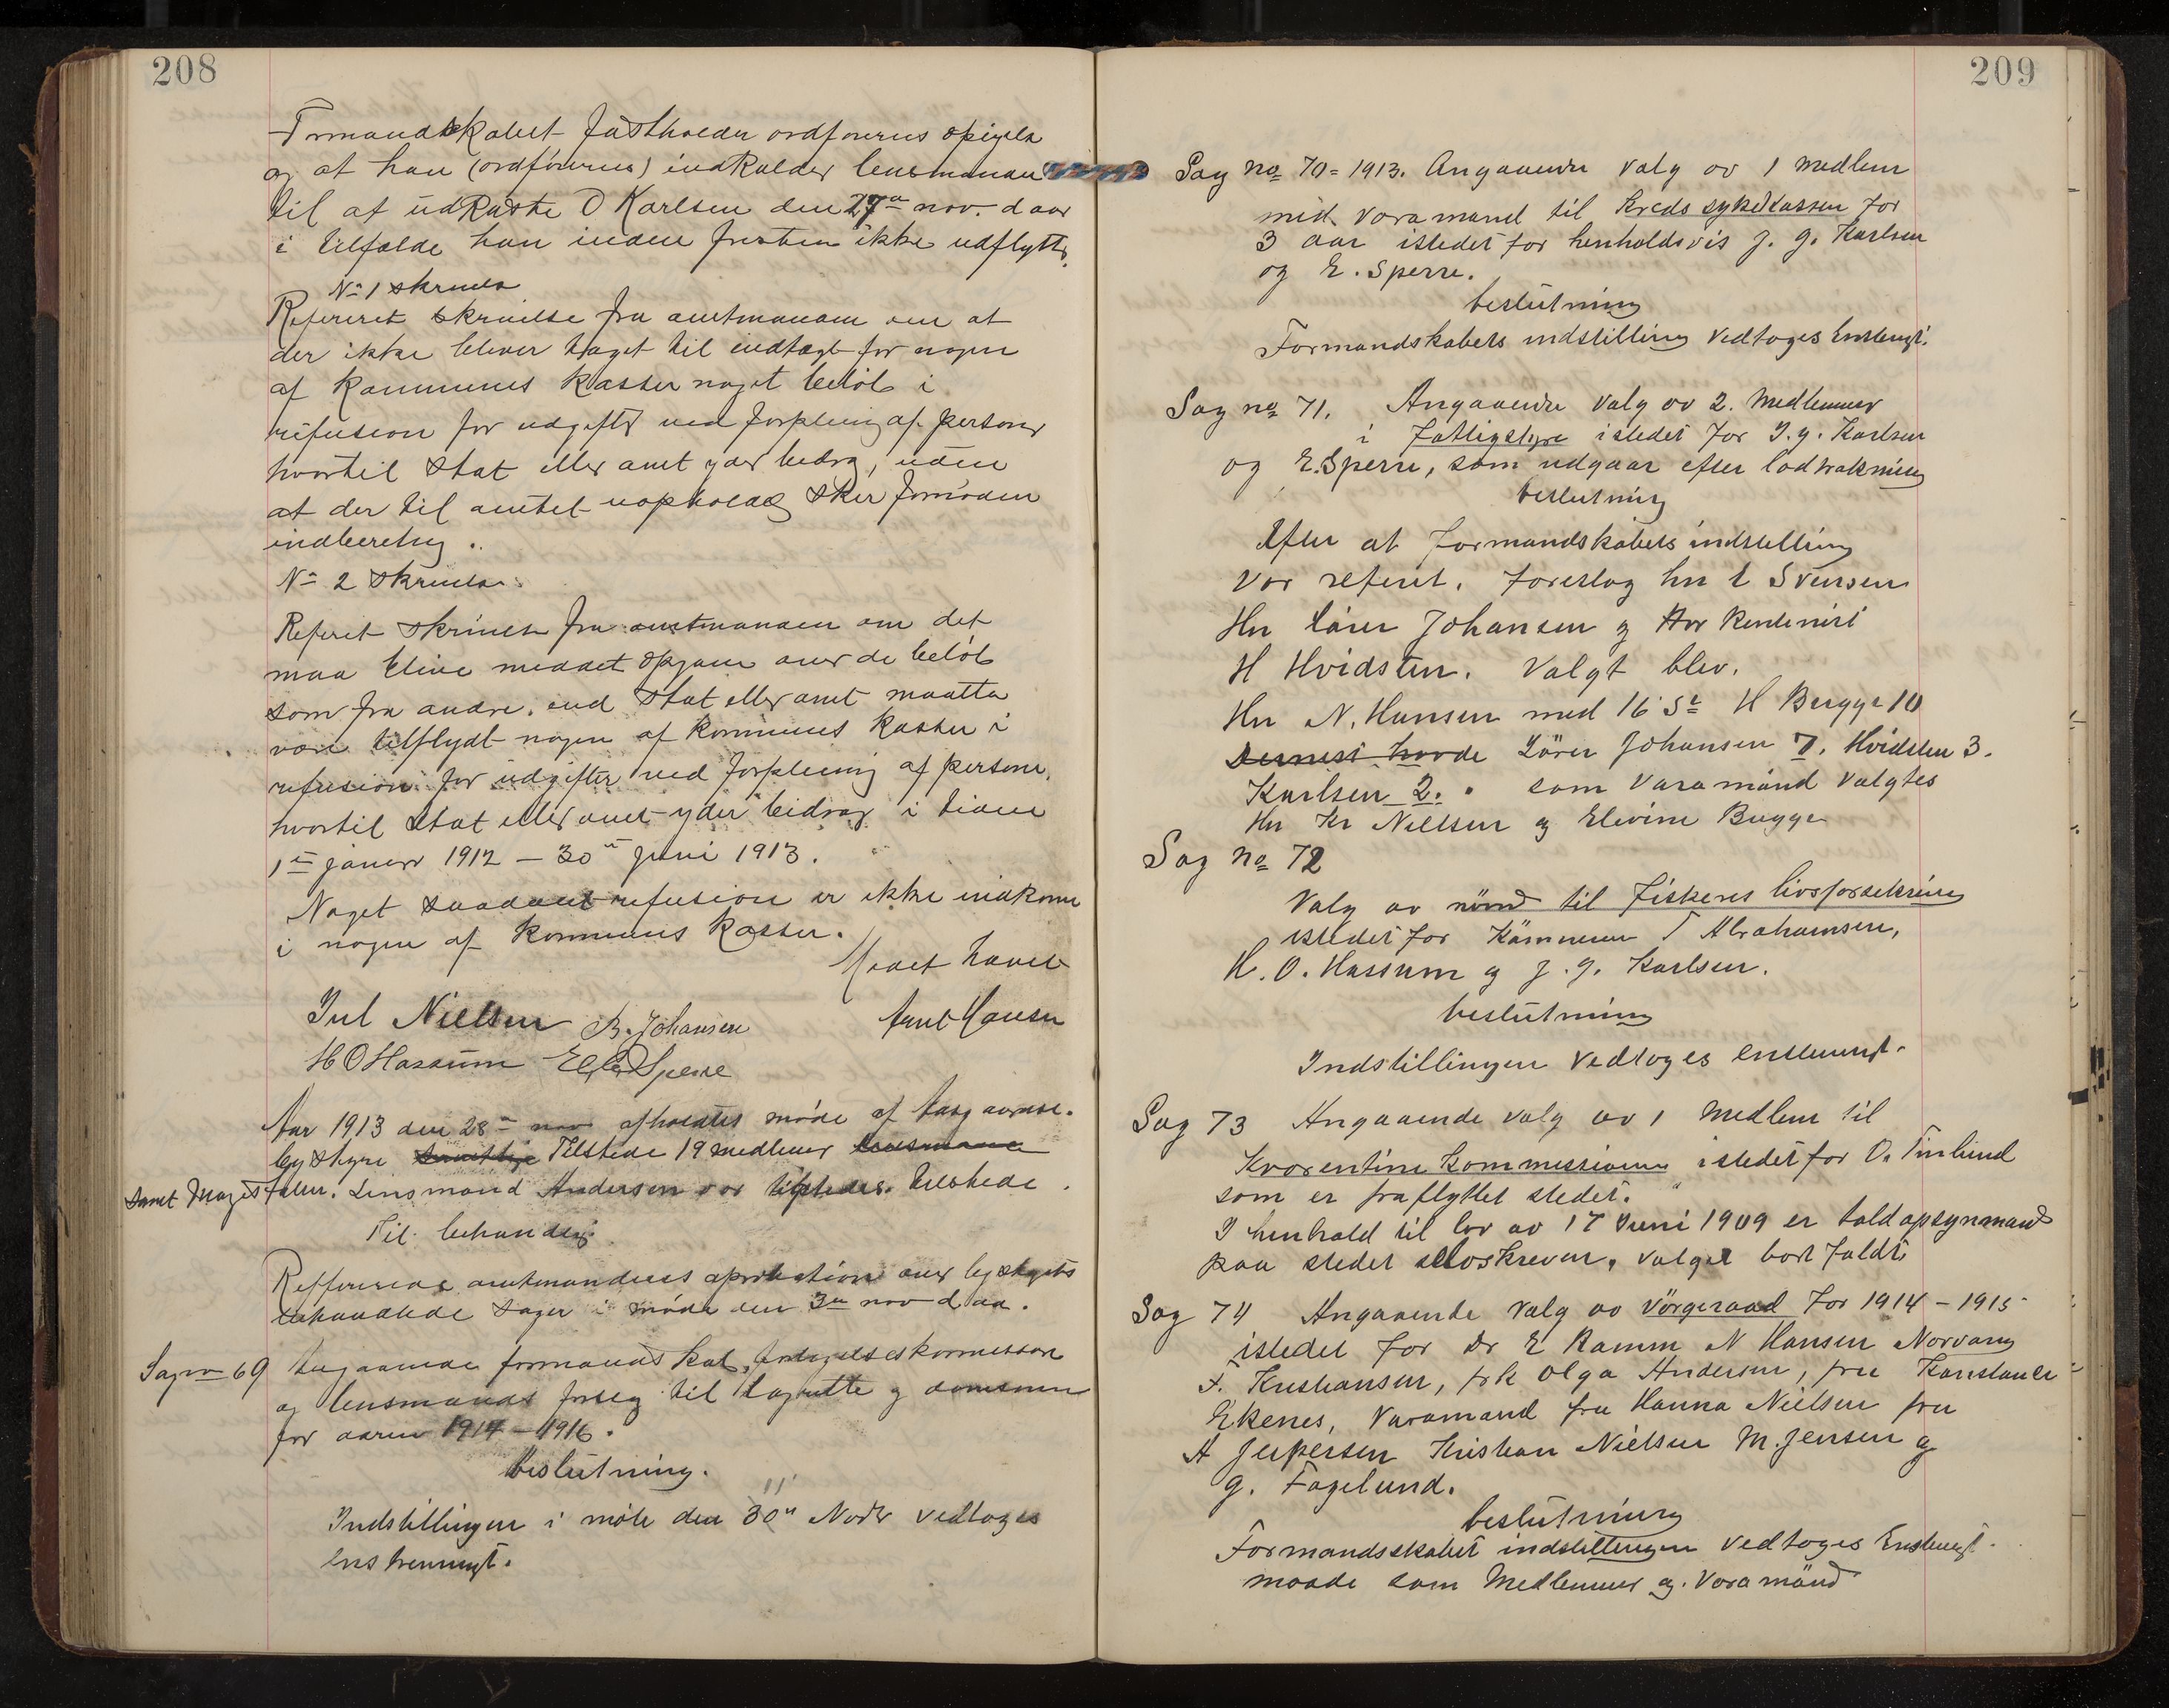 208
Formandskabet fastholder ordførerens opsigelse
og at han (ordføreren) indkalder lensmanden
til at udkaste O Karlsen den 27de nov. d aar
i tilfælde han inden fristen ikke udflytter.
No 1 skrivelse
Refereret skrivelse fra amtmanden om at
der ikke bliver taget til indtægt for nogen
af kommunens kasser noget beløb i
refusion for udgifter ved forpleining af personer
hvortil stat eller amt yder bidrag, uden
at der til amtet uopholdelig sker fornøden
indberetning.
No 2 skrivelse
Referet skrivelse fra amtmanden om det
maa blive meddelt opgave over de beløb
som fra andre end stat eller amt maatte
være tilflydt nogen af kommunens kasser i
refusion for udgifter ved forpleining af persone
hvortil stat eller amt yder bidrag i tiden
1ste januar 1912 – 30te juni 1913.
Noget saadant refusion er ikke indkommet
i nogen af kommunens kasser.
Mødet hævet
Jul Nielsen B. Johansen Arnt Hansen
H O Hassum Sperre
Aar 1913 den 28de nov afholdtes møde af
bystyre samtlige Tilstede 19 medlemer lensmand
samt Magistraten. Lensmand Andersen var tilstede.
Til behandling
Refereredes amtmandens aprobation over bystyrets
behandlede sager i møde den 3de nov d aa.
Sag no 69 Angaaende formandskab, forligelseskommission
og lensmands forslag til lagrette og domsmen
for aarene 1914 – 1916.
Beslutning.
Indstillingen i møte den 30te Novbr vedtoges
enstemmigt.
209
Sag no 70 = 1913. Angaaende valg av 1 medlem
med varamand til Kreds sykekassen for
3 aar istedet for henholdsvis J. G. Karlsen
og E. Sperre.
beslutning
Formandskabets indstilling vedtoges Enstemgt.
Sag no 71. Angaaende valg av 2. Medlemmer
i Fattigstyre istedet for J. G. Karlsen
og E. Sperre, som udgaar efter lodtrækning
beslutning
Efter at formandskabets indstilling
var referet. foreslog hr L Svensen
Hr Lärer Johansen og Hr Rentenist
H Hvidsten. Valgt blev.
Hr N. Hansen med 16 St H Bugge 10
Dernest havde Lörer Johansen 7. Hvidsten 3.
Karlsen 2. som varamänd valgtes
Hr Kr Nielsen og Elevine Bugge
Sag no 72
Valg av nämd til Fiskeres livsforsikring
istedet for Kämneren T Abrahamsen,
H. O. Hassum og J. G. Karlsen.
beslutning
Indstillingen vedtoges enstemmigt.
Sag 73 Angaaende valg av 1 Medlem til
Kvorentine Kommissionen istedet for O. Finlund
som er fraflyttet stedet.
I henhold til lov av 17 Juni 1909 er toldopsynmand
paa stedet selvskreven, valget bortfaldt
Sag 74 Angaaende valg av Vörgeraad for 1914 – 1915
istedet for Dr E Ramm N Hansen Norvang
F. Kristiansen, frk Olga Andersen, fru Konstance
Ekenes, Varamand fru Hanna Nielsen fru
A Jespersen Kristian Nielsen M. Jensen og
G. Fagelund.
beslutning
Formandsskabet indstillingen vedtoges Enstemgt.
maade som Medlemmer og Varamänd